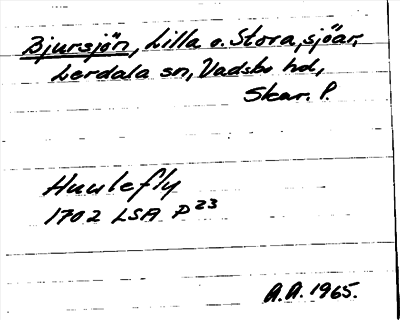 Bjursjön, Lilla o. Stora, sjöar,
Lerdala sn, Vadsbo hd,
Skar. l.
1702 LSA P23
A.A. 1965.